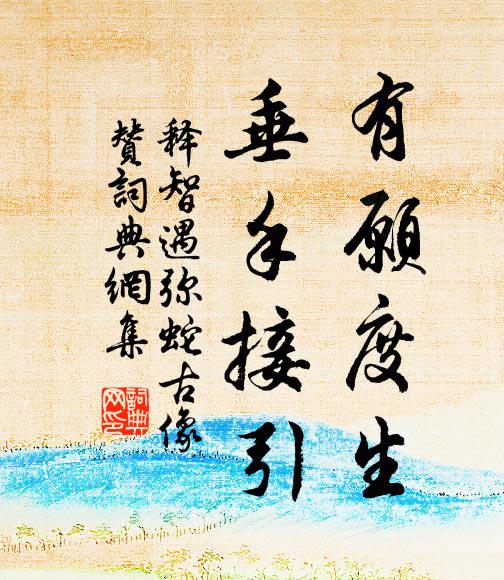 有願度生
垂手接引
释智遇弥蛇古像
贊詞典網集
詞典
网印